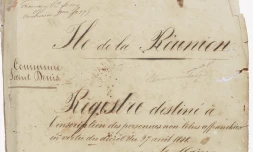 Ile de la Réunion
Commune
Saint Denis
Registre destiné à
l'inscription des personnes non libres affranchies
en vertu du décret du 27 avril 1848.